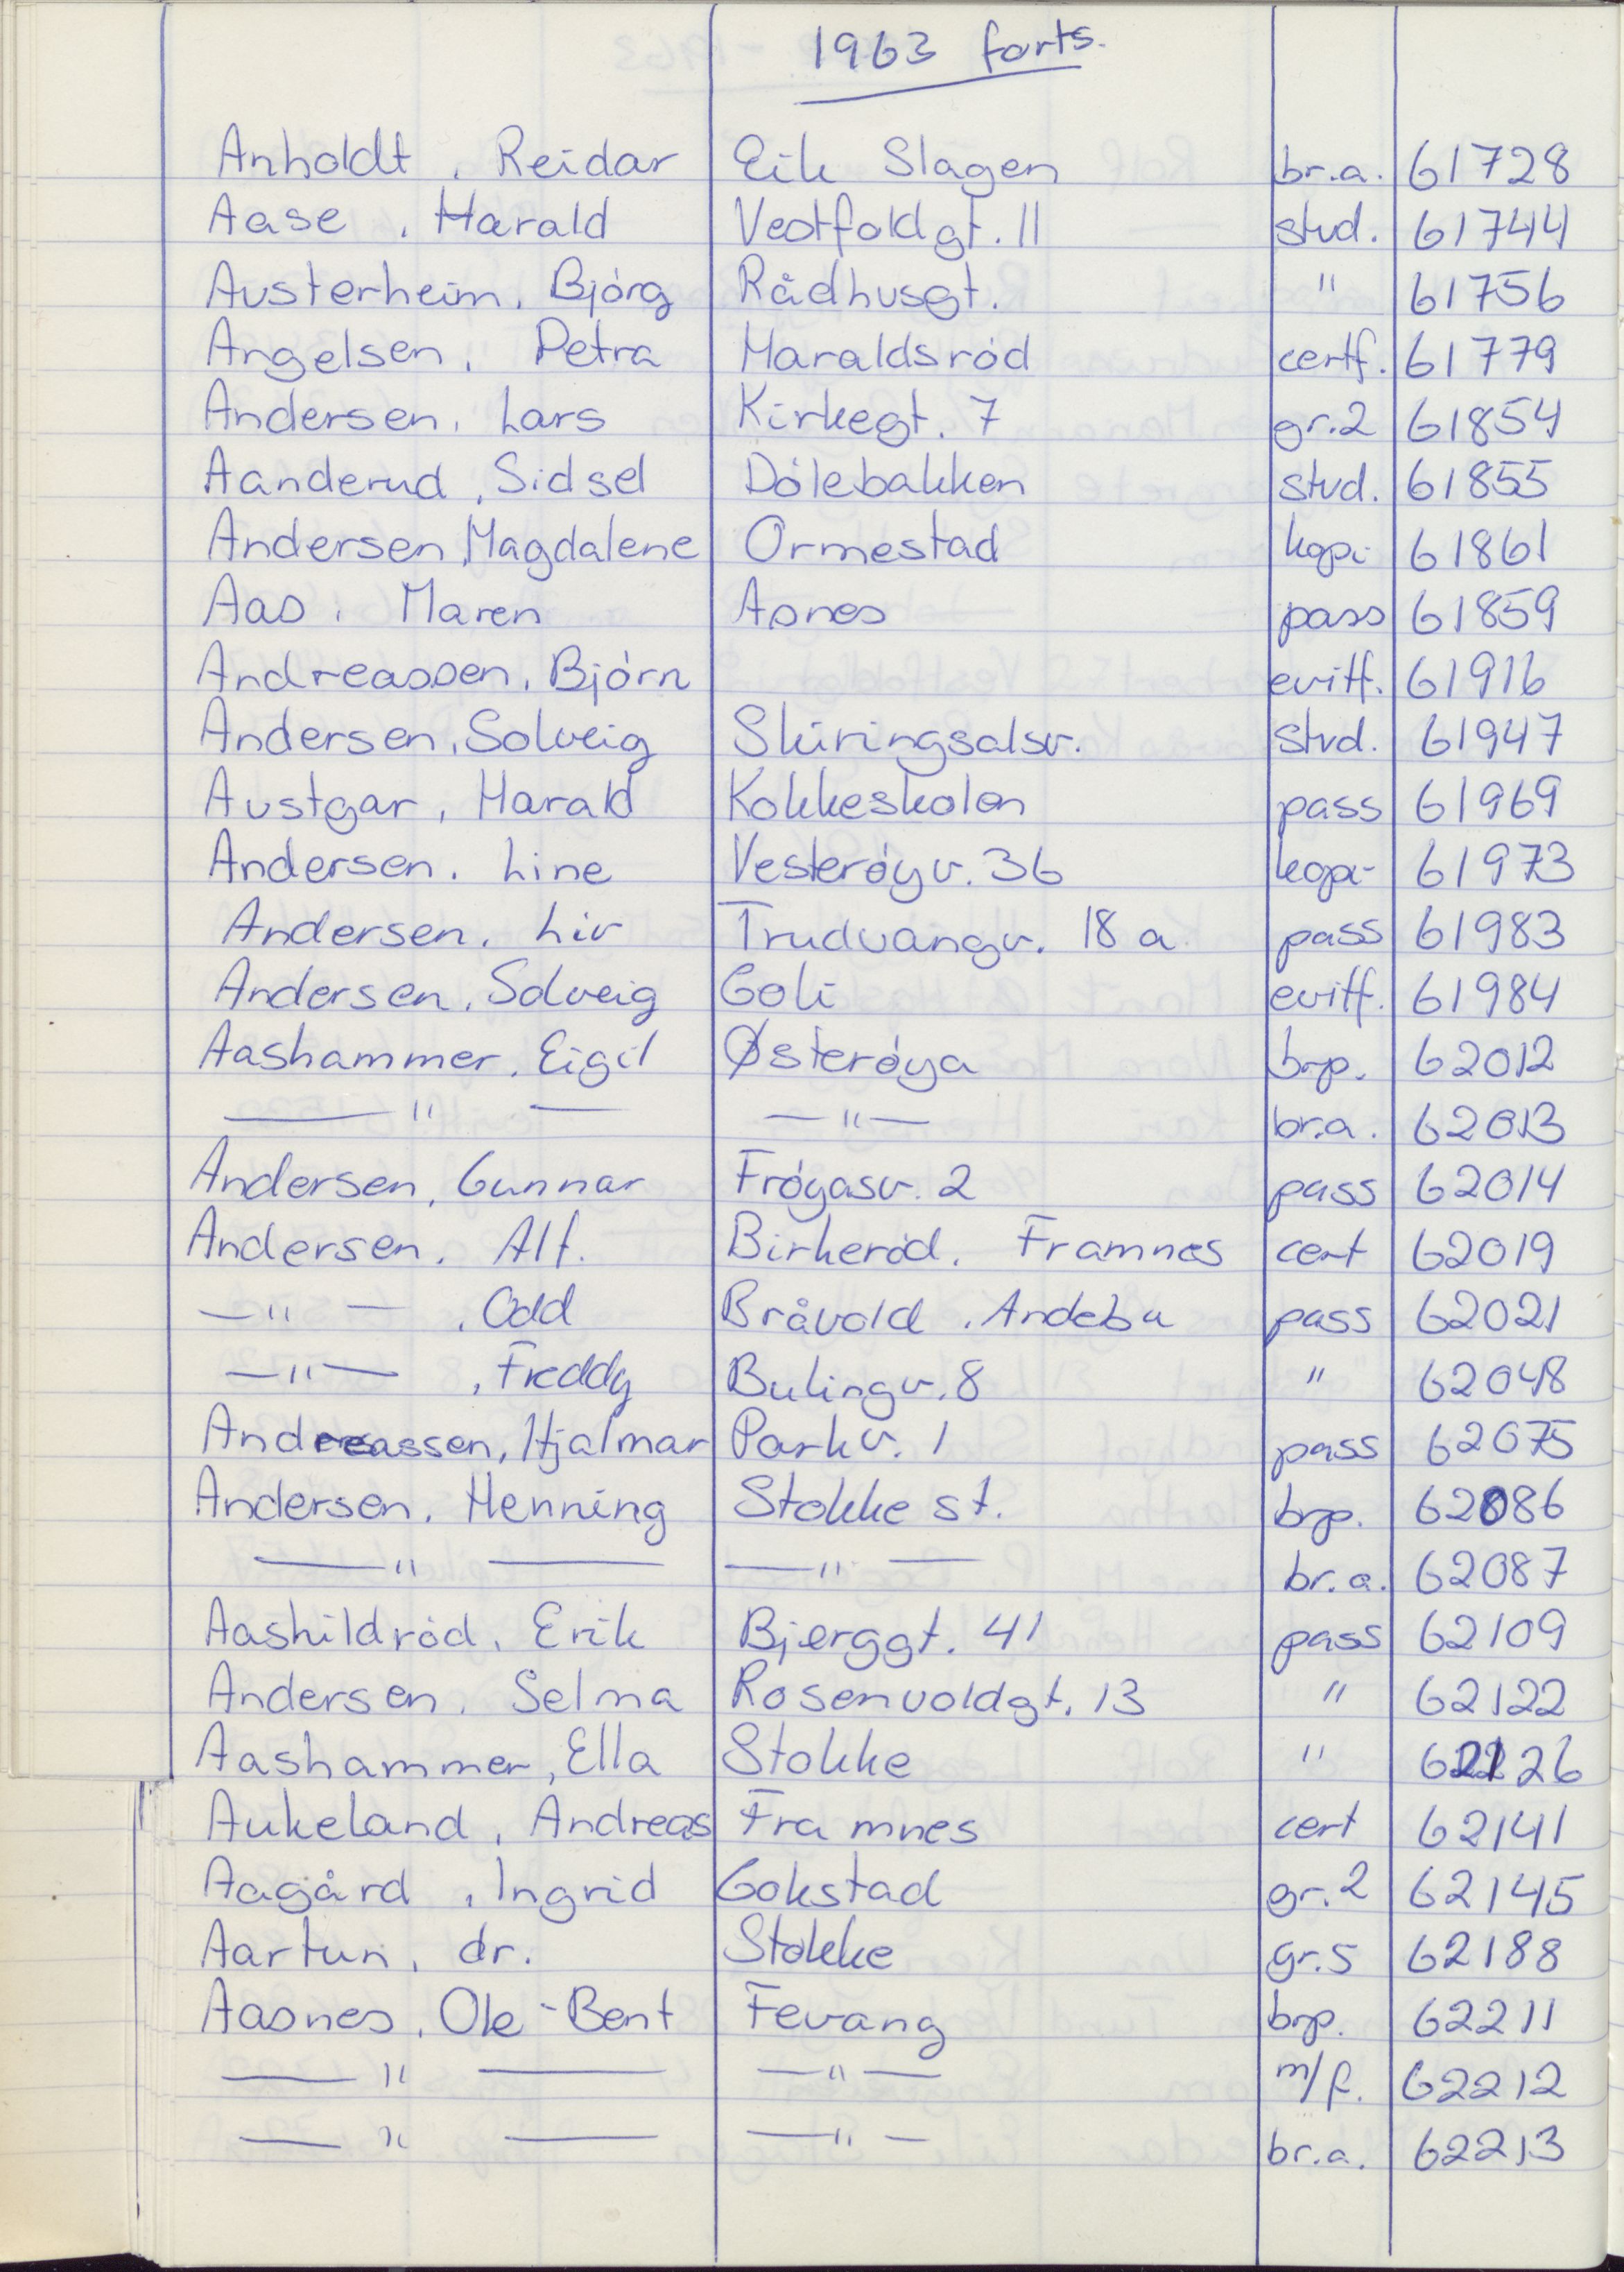 1963 forts.
Anholdt, Reidar Eik Slagen br.a. 61728
Aase, Harald Vestfoldgt. 11 stud. 61744
Austerheim, Bjørg Rådhusgt. " 61756
Angelsen, Petra Haraldsrød certf. 61779
Andersen, Lars Kirkegt. 7 gr.2 61854
Aanderud, Sidsel Dølebakken stud. 61855
Andersen, Magdalene Ormestad kopi 61861
Aas, Maren Asnes pass 61859
Andreassen, Bjørn evitf. 61916
Andersen, Solveig Skiringsalsv. stud. 61947
Austgar, Harald Kokkeskolen pass 61969
Andersen, Line Vesterøyv. 36 kopi 61973
Andersen, Liv Trudvangv. 18 a pass 61983
Andersen, Solveig Goli evitf. 61984
Aashammer, Eigil Østerøya brp. 62012
— " — — " — br.a. 62013
Andersen, Gunnar Frøyasv. 2 pass 62014
Andersen, Alf. Birkerød, Framnes cert 62019
— " —, Odd Bråvold, Andebu pass 62021
— " —, Freddy Bulingv. 8 " 62048
Andreassen, Hjalmar Parkv. 1 pass 62075
Andersen, Henning Stokke st. brp. 62086
— " — — " — br.a. 62087
Aashildrød, Erik Bjerggt. 41 pass 62109
Andersen, Selma Rosenvoldgt. 13 " 62122
Aashammer, Ella Stokke " 62126
Aukeland, Andreas Framnes cert 62141
Aagård, Ingrid Gokstad gr.2 62145
Aartun, dr. Stokke gr.5 62188
Aasnes, Ole-Bent Fevang brp. 62211
— " — — " — m/f. 62212
— " — — " — br.a. 62213